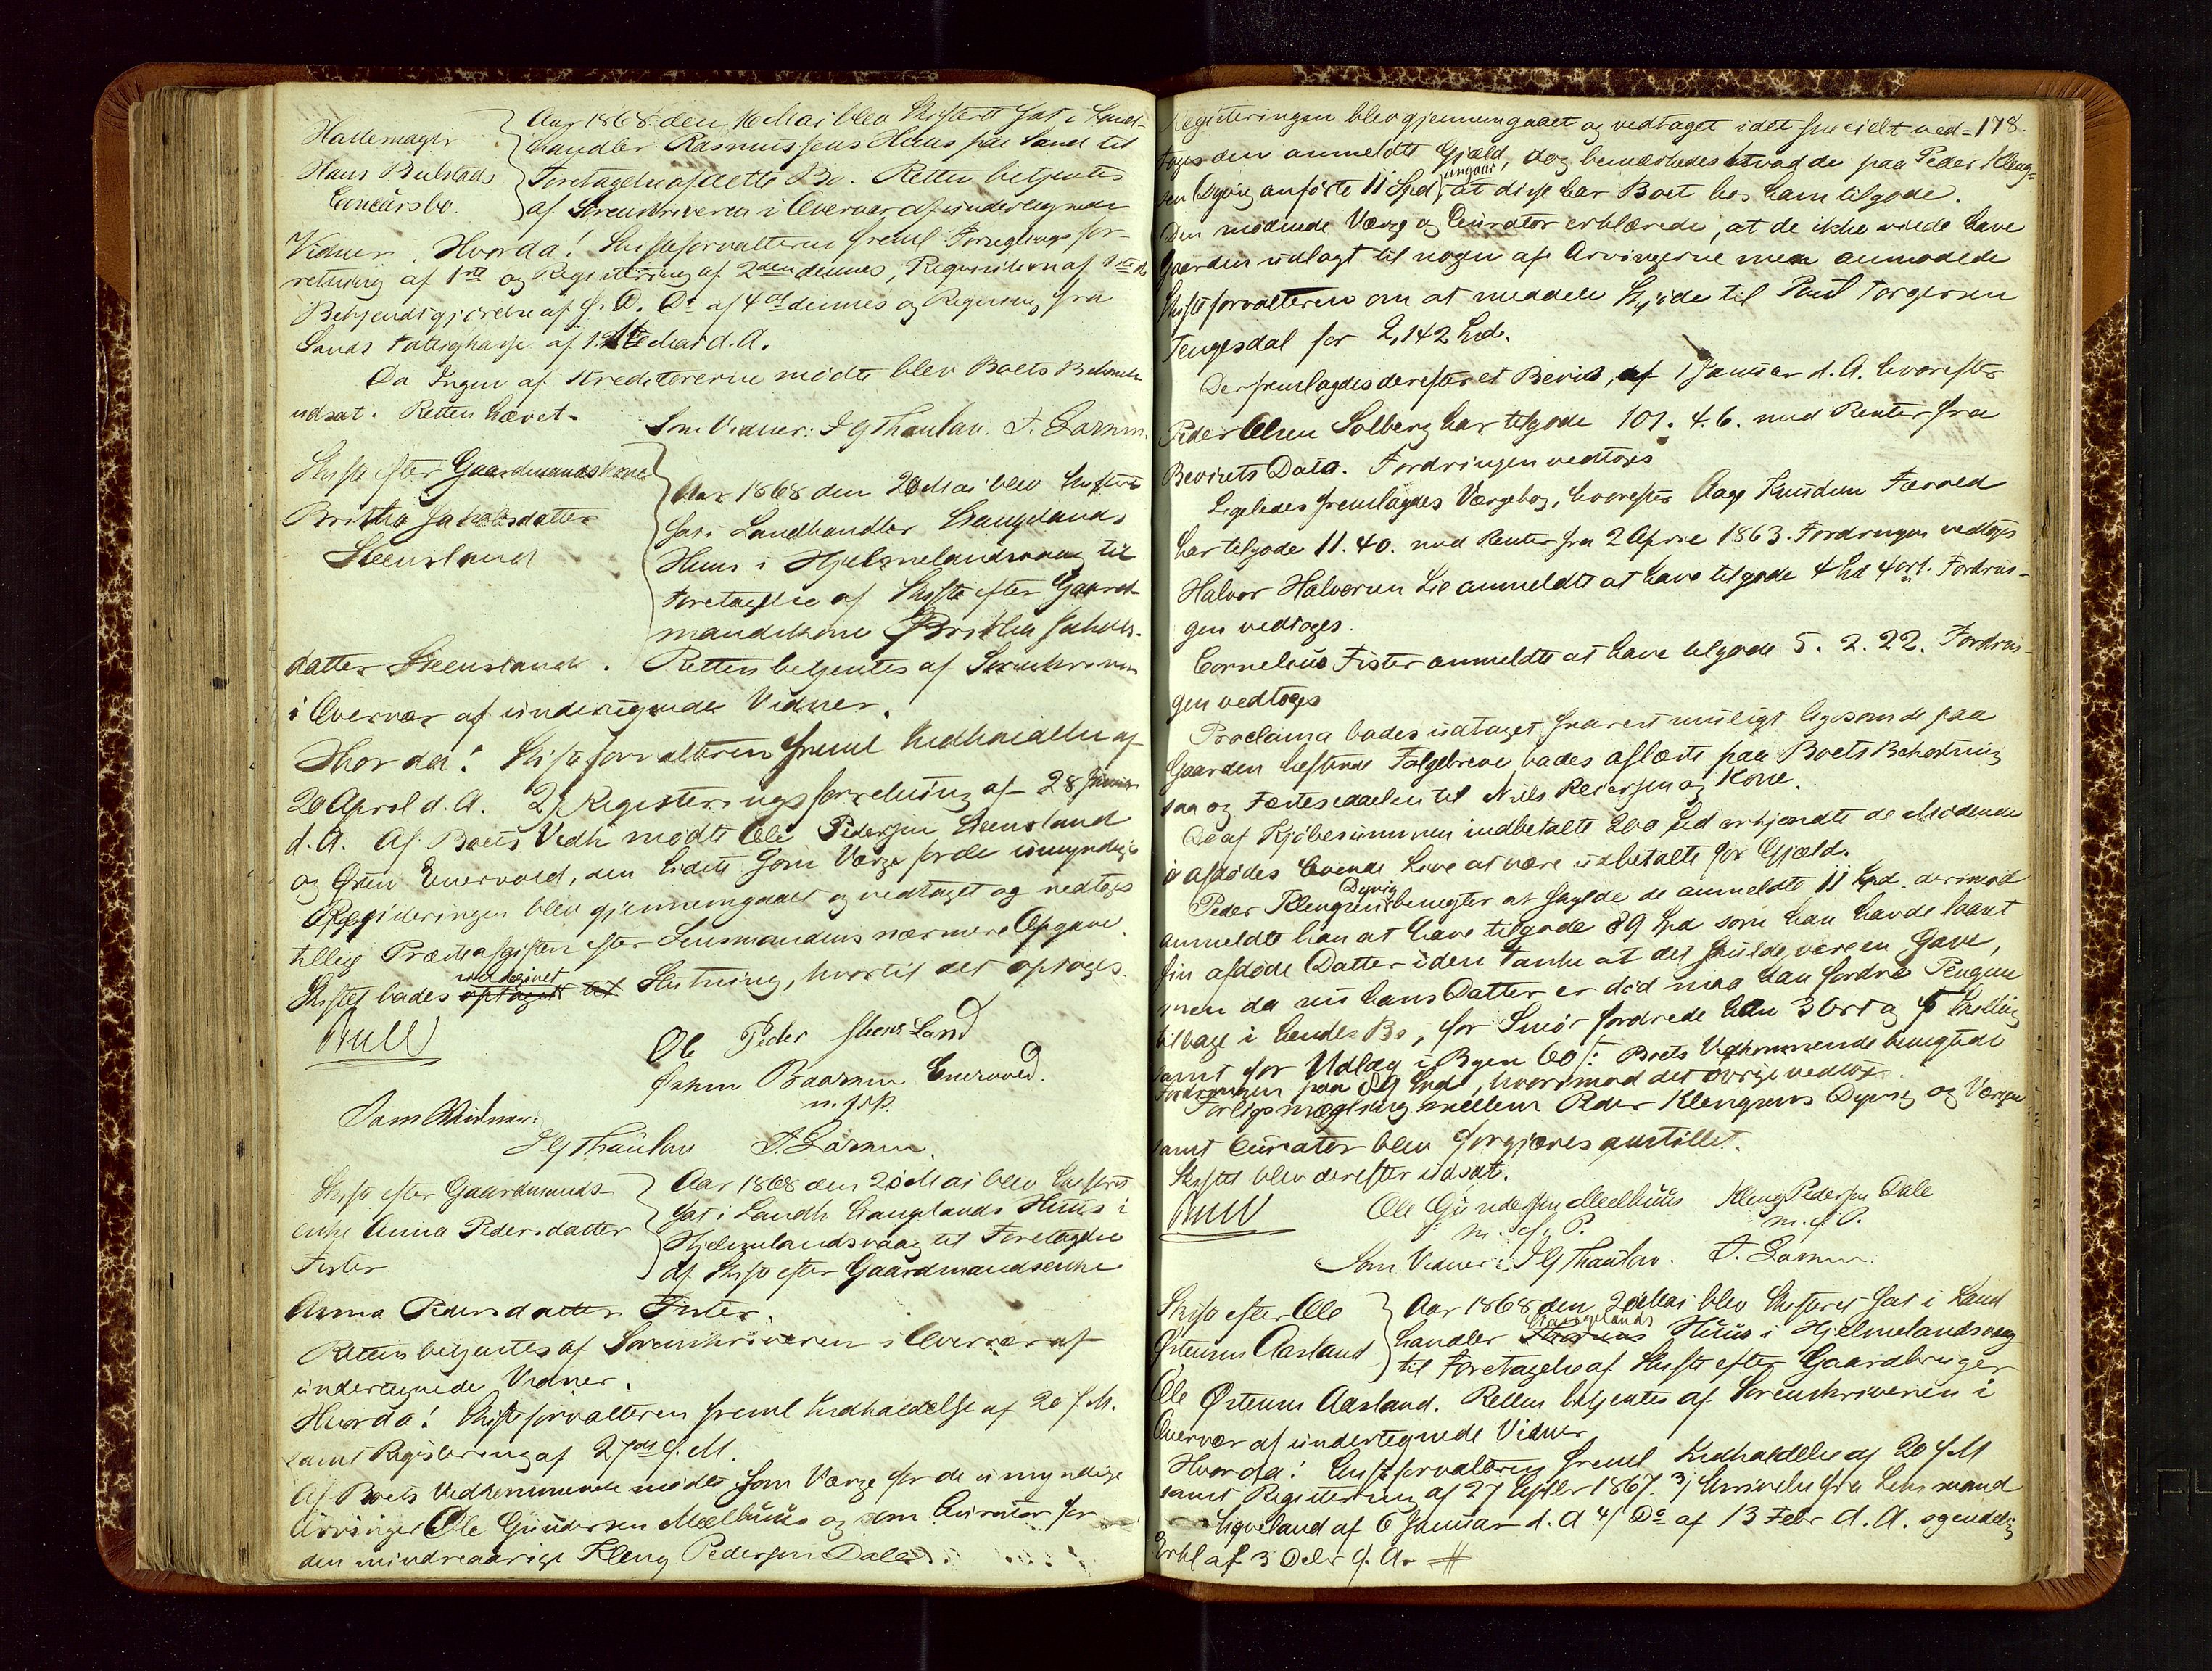 Hattemager
Hans Bulstads
Concursbo.
Aar 1868 den 16 Mai blev Skifteret sat i Land-
handler Rasmussens Huus paa Sand til
Foretagelse af dette Bo. Retten betjentes
af Sorenskriveren i Overvær af undertegnede
Vidner. Hvorda! Skifteforvalteren freml Forseglingsfor-
retning af 1ste og Registrering af 2den dennes, Requisition af 1ste d
Bekjendtgjørelse af s. D. Do af 4de dennes og Regning fra
Sands Fattigkasse af 1 Mai d. A.
Da Ingen af Kreditorerne mødte blev Boets Behandl
udsat. Retten hævet.
Som Vidner: I G Thaulow. T. Larsen.
Skifte efter Gaardmandskone
Britha Jakobsdatter
Steensland
Aar 1868 den 20 Mai blev Skifteret
sat i Landhandler Haugelands
Huus i Hjelmelandsvaag til
Foretagelse af Skifte efter Gaard-
mandskone Britha Jakobs-
datter Steensland. Retten betjentes af Sorenskriveren
i Overvær af undertegnede Vidner.
Hvorda! Skifteforvalteren freml Indkaldelse af
20 April d. A. 2) Registreringsforretning af 28 Januar
d. A. Af Boets Vedk mødte Ole Pedersen Steensland
og Enervold, den Sidste som Værge for de umyndige
Registeringen blev gjennemgaaet og vedtaget og vedtoges
tillige Præsteafgiften efter Lensmandens nærmere Opgave.
Skiftet bades optaget til Slutning, hvortil det optoges.
Bull
Ole Peder Steensland
Baarsen Enervold.
m. f. P.
Som Vidner:
I G Thaulow T. Larsen.
Skifte efter Gaardmands-
enke Anna Pedersdatter
Fister
Aar 1868 den 20 Mai blev Skifteret
sat i Landh Haugelands Huus i
Hjelmelandsvaag til Foretagelse
af Skifte efter Gaardmandsenke
Anna Pedersdatter Fister.
Retten betjentes af Sorenskriveren i Overvær af
undertegnede Vidner.
Hvorda! Skifteforvalteren freml Indkaldelse af 20 f. M.
samt Registering af 27de f. M.
Af Boets Vedkommende mødte som Værge for de umyndige
Arvinger Ole Gundersen Mælhuus og som Curator for
den mindreaarige Kleng Pedersen Dale.
178.
Registeringen blev gjennemgaaet og vedtaget idet specielt ved-
toges den anmeldte Gjæld, dog bemærkedes hvad de paa Peder Kleng-
sen Dyvig anførte 11 Spd angaar at disse har Boet hos ham tilgode.
Den mødende Værge og Curator erklærede, at de ikke vilde have
Gaarden udlagt til nogen af Arvingerne men anmodede
Skifteforvalteren om at meddele Skjøde til Poul Torgersen
Tengesdal for 2,142 Spd.
Der fremlagdes derefter et Bevis, af 1 Januar d. A. hvorefter
Peder Olsen Solberg har tilgode 101. 4. 6. med Renter fra
Bevisets Dato. Fordringen vedtoges
Ligeledes fremlagdes Værgebog, hvorefter Aage Knudsen Færvold
har tilgode 11. 40. med Renter fra 2 April 1863. Fordringen vedtoges
Halvor Halvorsen Lie anmeldte at have tilgode 4 Spd 4 ort. Fordrin-
gen vedtoges.
Cornelius Fister anmeldte at have tilgode 5. 2. 22. Fordrin-
gen vedtoges
Proclama bades udtaget snarest muligt ligesom de paa
Gaarden heftende Følgebreve bades aflæste paa Boets Bekostning
saa og Fæsteseddelen til Niels Reiersen og Kone.
De af Kjøbesummen indbetalte 200 Spd erkjendte de Mødende
i afdødes levende Live at være udbetalte for Gjæld.
Peder Klengsen Dyvig benegter at skylde de anmeldte 11 Spd. derimod
anmeldte han at have tilgode 89 Spd som han havde laant
sin afdøde Datter i den Tanke at det skulde være en Gave,
men da nu hans Datter er død maa han fordre Pengene
tilbage i hendes Bo, for Smør fordrede han 3 Ort og 5 Skilling
samt for Udlæg i Byen 60 s. Boets Vedkommende benegtede
Fordringen paa 89 Spd, hvorimod det øvrige vedtoges.
Forligsmægling mellem Peder Klengsens Dyvig og Værgen
samt Curator blev forgjæves anstillet.
Skiftet blev derefter udsat.
Bull
Ole Gundersen Mælhuus Kleng Pedersen Dale
m. f. P. m. f. P.
Som Vidner: I G Thaulow. T. Larsen
Skifte efter Ole
Østensen Aasland
Aar 1868 den 20 Mai blev Skifteret sat i Land
handler Haugelands Huus i Hjelmelandsvaag
til Foretagelse af Skifte efter Gaardbruger
Ole Østensen Aasland. Retten betjentes af Sorenskriveren i
Overvær af undertegnede Vidner.
Hvorda! Skifteforvalteren freml Indkaldelse af 20 f M
samt Registering af 27 Septbr 1867. 3) Skrivelse fra Lensmand
af 6 Januar d. A 4) Do af 13 Febr d. A. og endelig
Erkl af 3 Debr f. A.